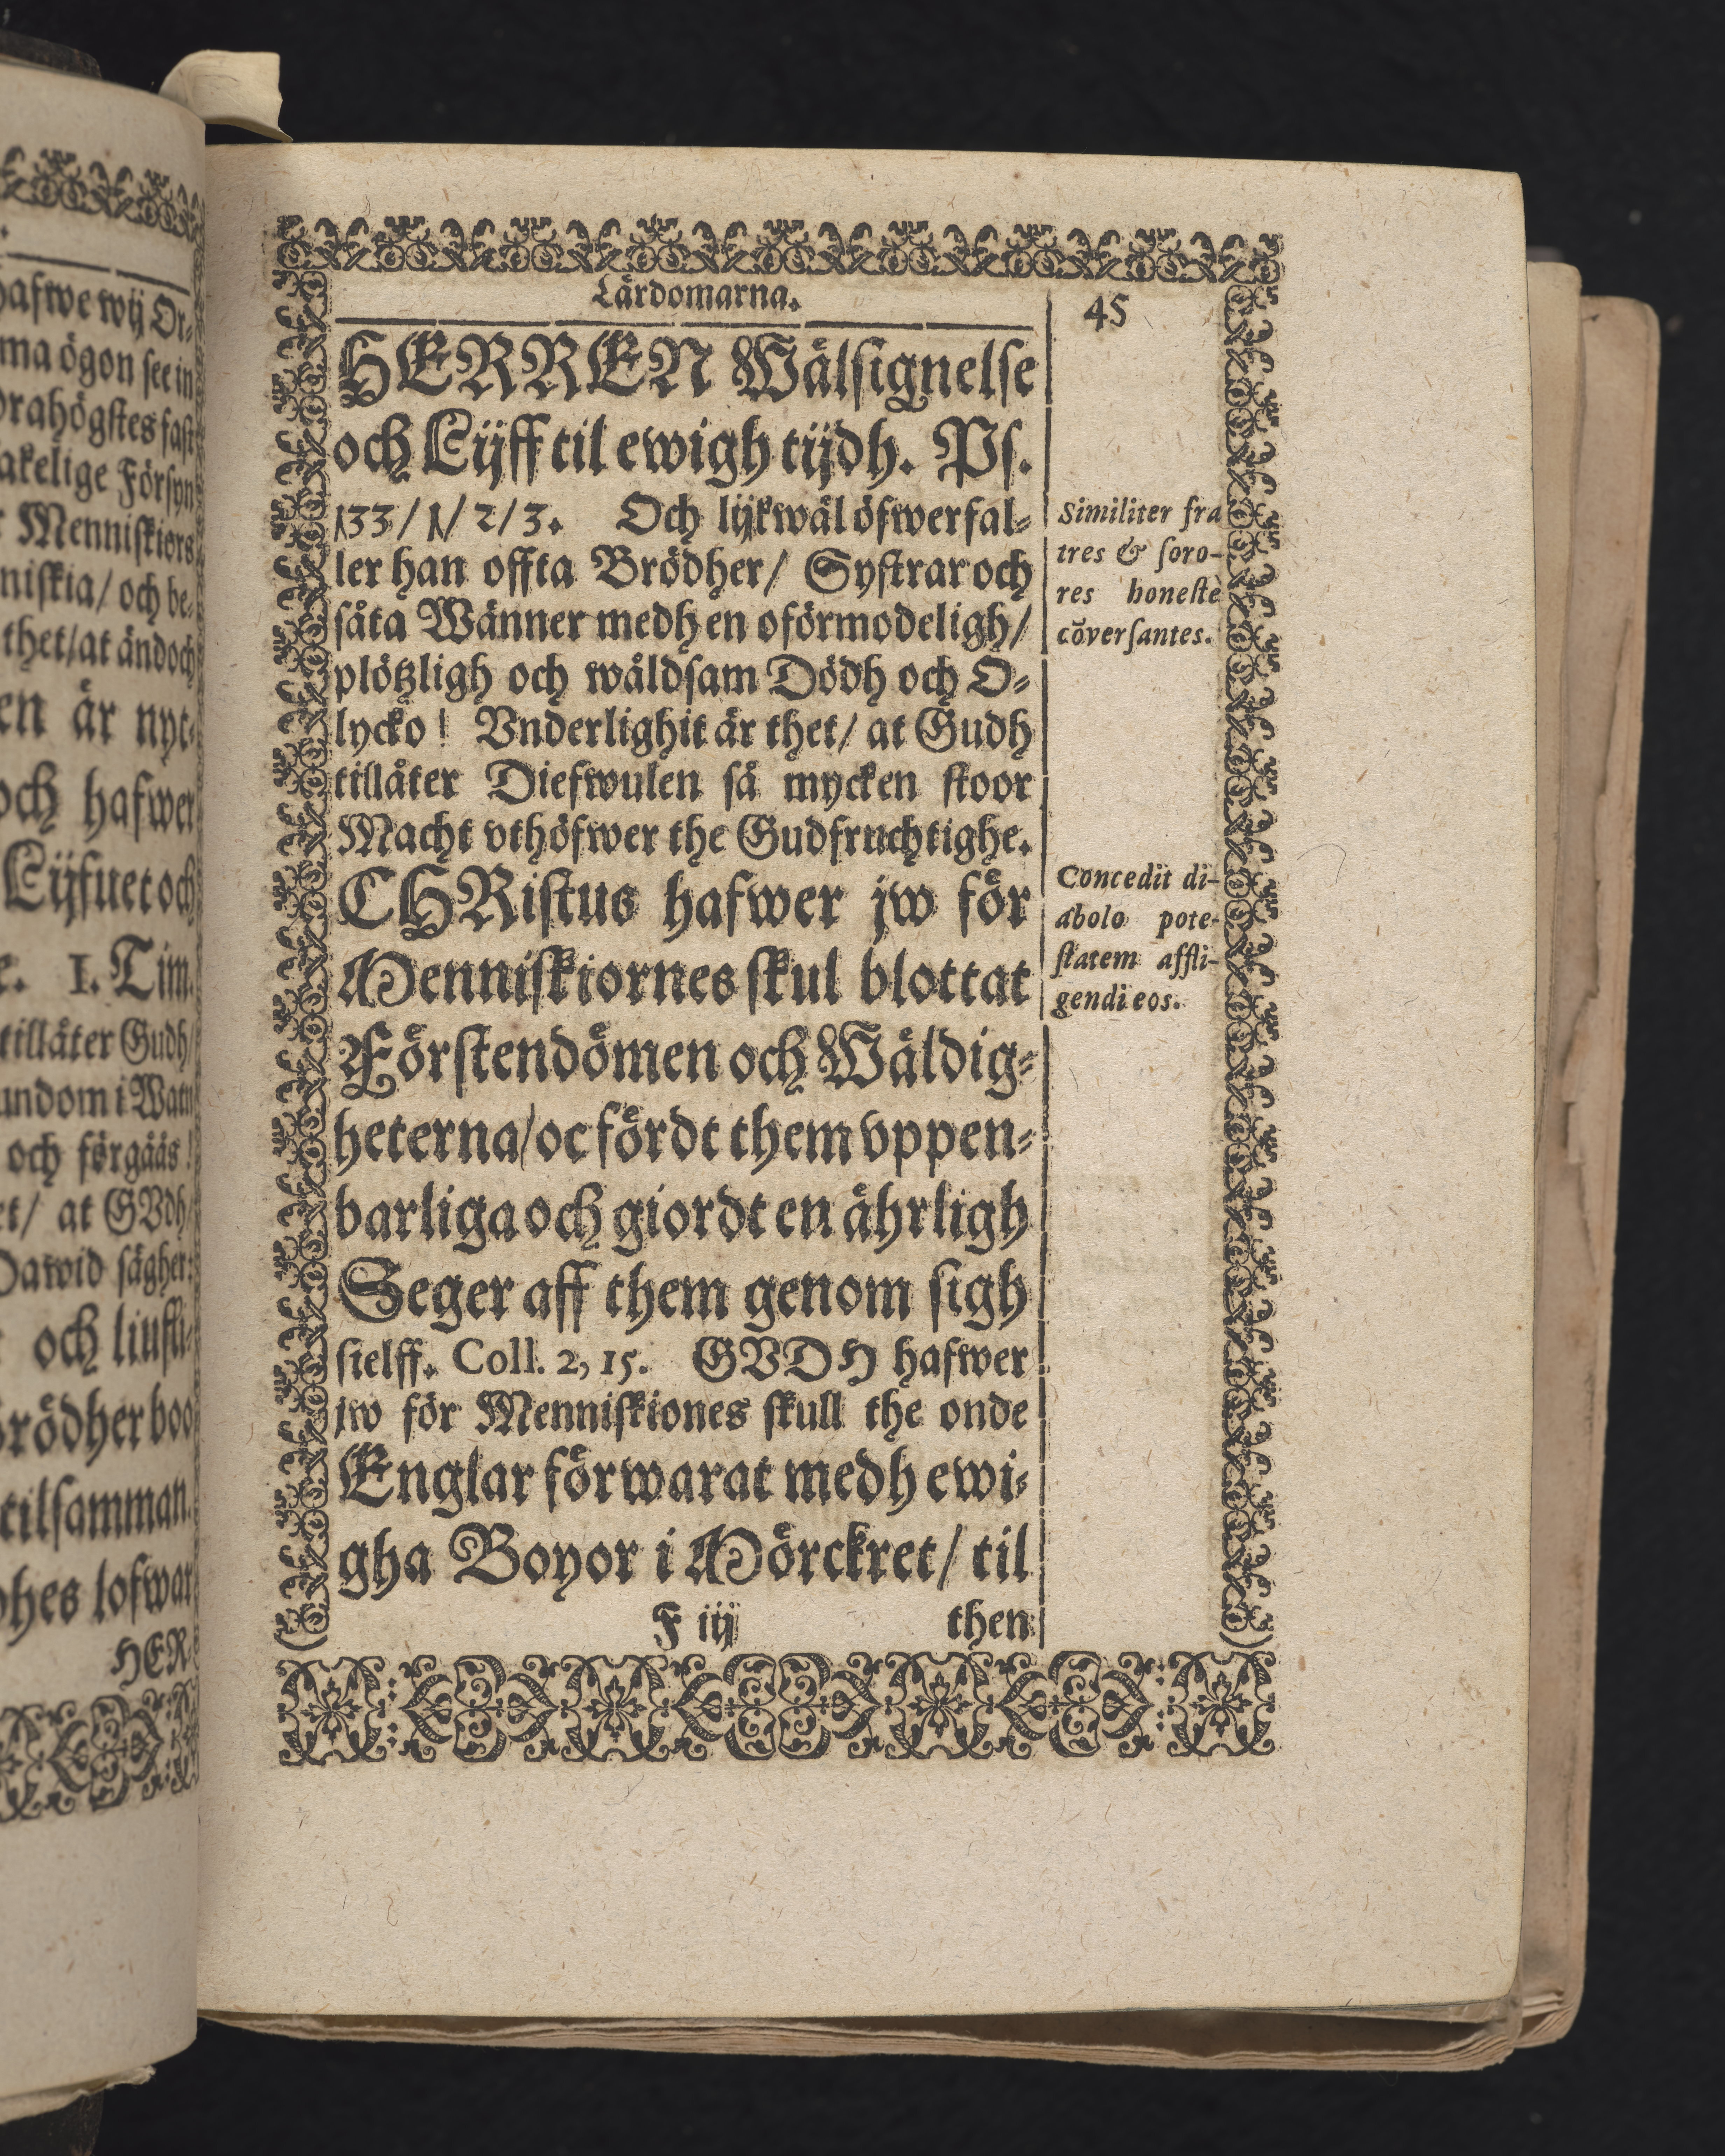 Lärdomarna.
45
HERREN Wälsignelse
och Lijff til ewigh tijdh. Ps.
133/1/2/3. Och lijkwäl öfwerfal-
ler han offta Brödher/ Systrar och
såta Wänner medh en oförmodeligh/
plötzligh och wåldsam Dödh och O-
lycko! Vnderlighit är thet/ at Gudh
tillåter Diefwulen så mycken stoor
Macht vthöfwer the Gudfruchtighe.
CHRistus hafwer jw för
Menniskiornes skul blottat
Förstendömen och Wäldig-
heterna/ oc fördt them vppen-
barliga och giordt en ährligh
Seger aff them genom sigh
sielff. Coll. 2, 15. GVDH hafwer
jw för Menniskiones skull the onde
Englar förwarat medh ewi-
gha Boyor i Mörckret/ til
F iij then
Similiter fra
tres & soro-
res honestè
cõversantes.
Concedit di-
abolo pote-
statem affli-
gendi eos.
hafwe wij Or-
ma ögon see in
drahögstes fast
akelige Försyn
Menniskiors
niskia/ och be-
thet/ at ändoch
en är nyt-
och hafwer
Lijfuet och
e. 1. Tim.
tillåter Gudh/
undom i Watn
och förgåås!
et/ at GVdh/
Dawid sägher:
och liufli-
Brödher boo
tilsamman.
dhes lofwar
HER-